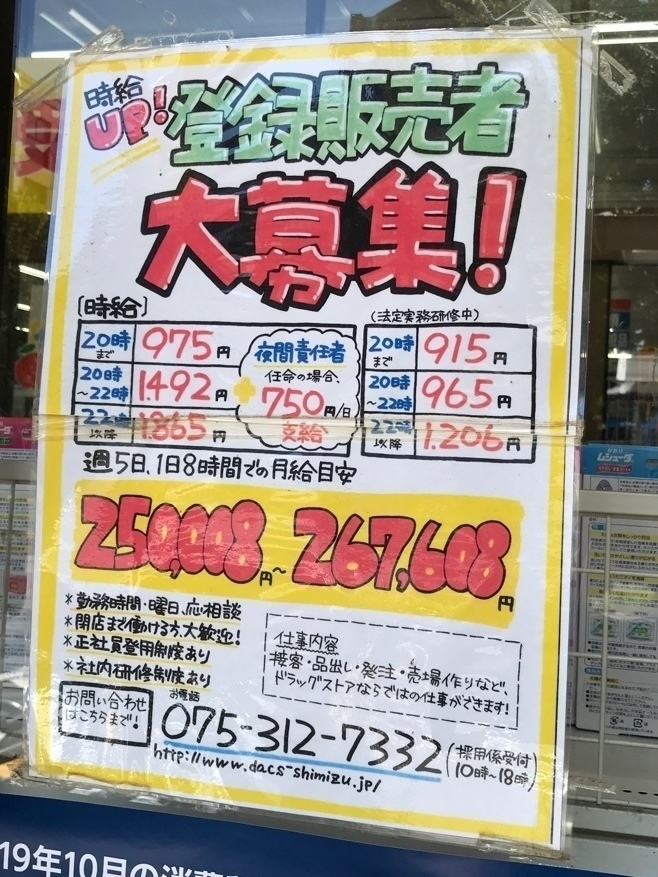 時給
UP!
登録販売者
大募集!
[時給]
20時まで 975円
20時~22時 1,492円
22時以降 1,865円
夜間責任者
任命の場合、
750円/日
支給
(法定実務研修中)
20時まで 915円
20時~22時 965円
22時以降 1,206円
週5日、1日8時間での月給目安
250,008円~267,608円
*勤務時間・曜日、応相談
*閉店まで働ける方、大歓迎!
*正社員登用制度あり
*社内研修制度あり
仕事内容
接客・品出し・発注・売場作りなど、
ドラッグストアならではの仕事ができます!
お問い合わせ
はこちらまで!
お電話
075-312-7332
(採用係受付
10時~18時)
http://www.dacs-shimizu.jp/
ムシューダ
19年10月の消費